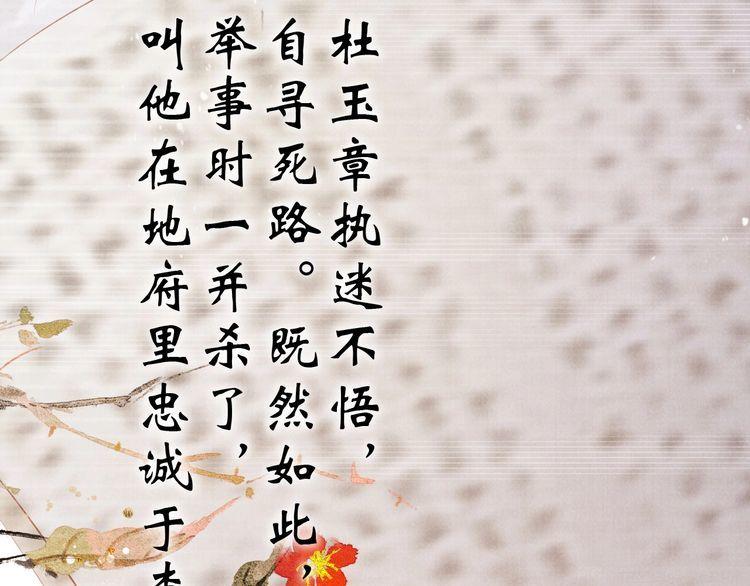 杜玉章执迷不悟，
自寻死路。既然如此，
举事时一并杀了，
叫他在地府里忠诚于